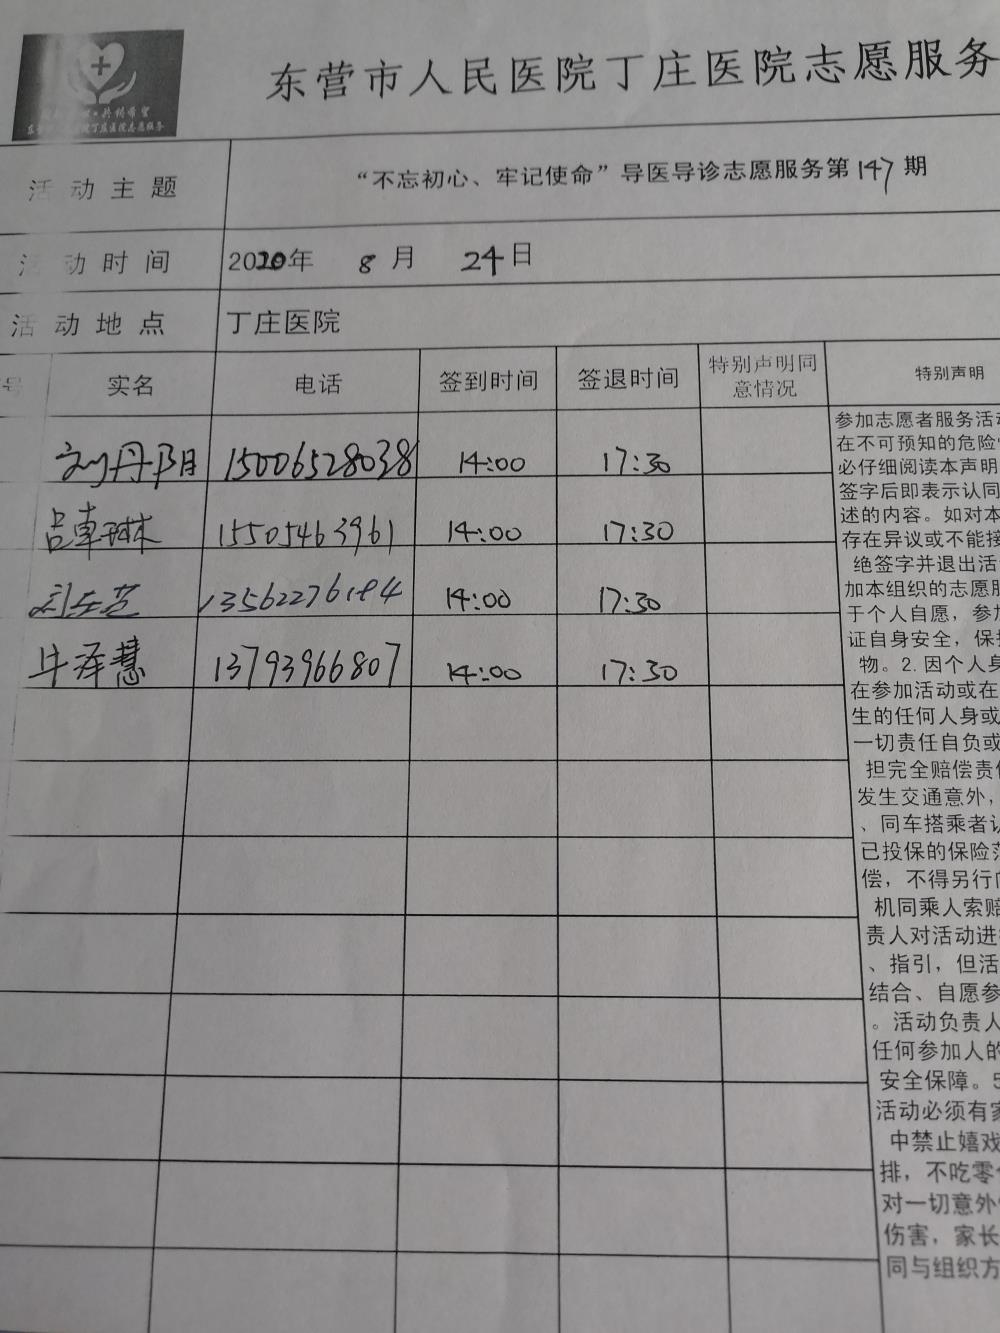 共铸希望
东营市人民医院丁庄医院志愿服务
活动主题
“不忘初心、牢记使命”导医导诊志愿服务第147期
活动时间 2020年 8月 24日
活动地点 丁庄医院
号 实名 电话 签到时间 签退时间 特别声明同意情况 特别声明
刘丹阳 15006528038 14:00 17:30
吕卓琳 15505463961 14:00 17:30
14:00 17:30
牛泽慧 13793966807 14:00 17:30
参加志愿者服务活
在不可预知的危险
必仔细阅读本声明
签字后即表示认同
述的内容。如对本
存在异议或不能接
绝签字并退出活
加本组织的志愿服
于个人自愿，参加
证自身安全，保
物。2.因个人身
在参加活动或在
生的任何人身或
一切责任自负或
担完全赔偿责任
发生交通意外，
、同车搭乘者认
已投保的保险范
偿，不得另行向
机同乘人索赔
责人对活动进
、指引，但活
结合、自愿参
。活动负责人
任何参加人的
安全保障。5
活动必须有家
中禁止嬉戏
排，不吃零
对一切意外
伤害，家长
同与组织方